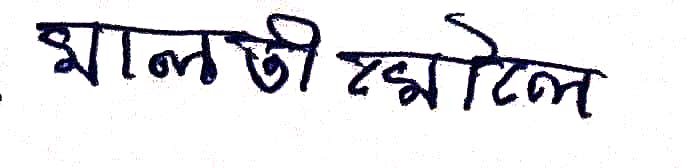 মালতী মোটেল